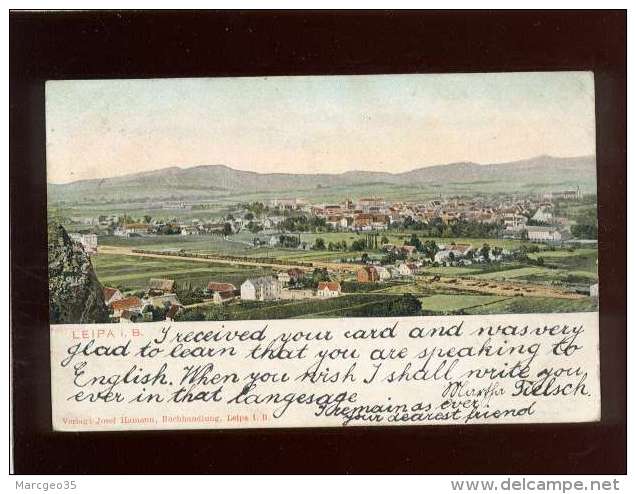 LEIPA I. B.
I received your card and was very
glad to learn that you are speaking to
English. When you wish I shall write you
ever in that langesage
Martha Tielsch.
I remain as ever
your dearest friend
Verlag: Josef Hamann, Buchhandlung, Leipa I. B.
© Marcgeo35
www.delcampe.net